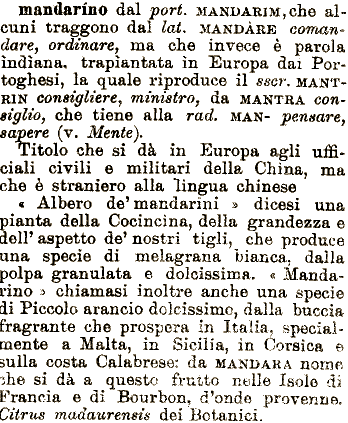 mandarino dal port. MANDARIM, che al-
cuni traggono dal lat. MANDÀRE coman-
dare, ordinare, ma che invece è parola
indiana, trapiantata in Europa dai Por-
toghesi, la quale riproduce il sscr. MANT-
RIN consigliere, ministro, da MANTRA con-
siglio, che tiene alla rad. MAN- pensare,
sapere (v. Mente).
Titolo che si dà in Europa agli uffi-
ciali civili e militari della China, ma
che è straniero alla lingua chinese
« Albero de' mandarini » dicesi una
pianta della Cocincina, della grandezza e
dell' aspetto de' nostri tigli, che produce
una specie di melagrana bianca, dalla
polpa granulata e dolcissima. « Manda-
rino » chiamasi inoltre anche una specie
di Piccolo arancio dolcissimo, dalla buccia
fragrante che prospera in Italia, special-
mente a Malta, in Sicilia, in Corsica e
sulla costa Calabrese: da MANDARA nome
che si dà a questo frutto nelle Isole di
Francia e di Bourbon, d'onde provenne.
Citrus madaurensis dei Botanici.